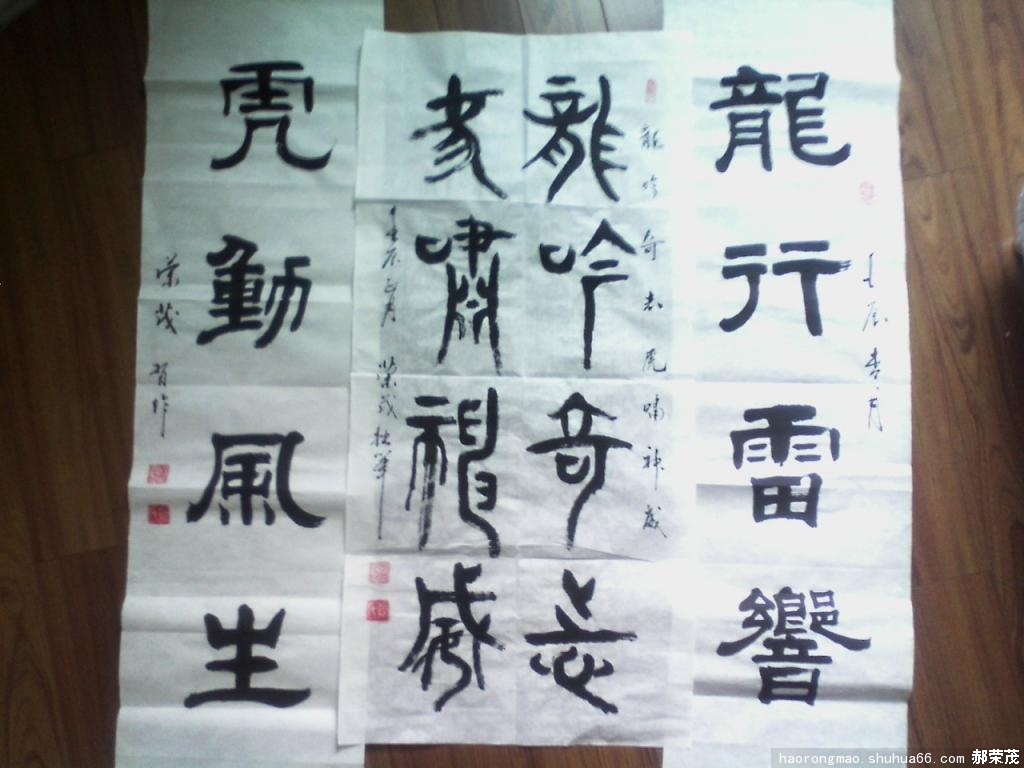 龍行雷響
壬辰杏月
龍吟奇志虎嘯神威
龍吟奇志
虎嘯神威
壬辰正月 榮茂拙筆
虎動風生
榮茂習作
haorongmao.shuhua66.com 郝荣茂